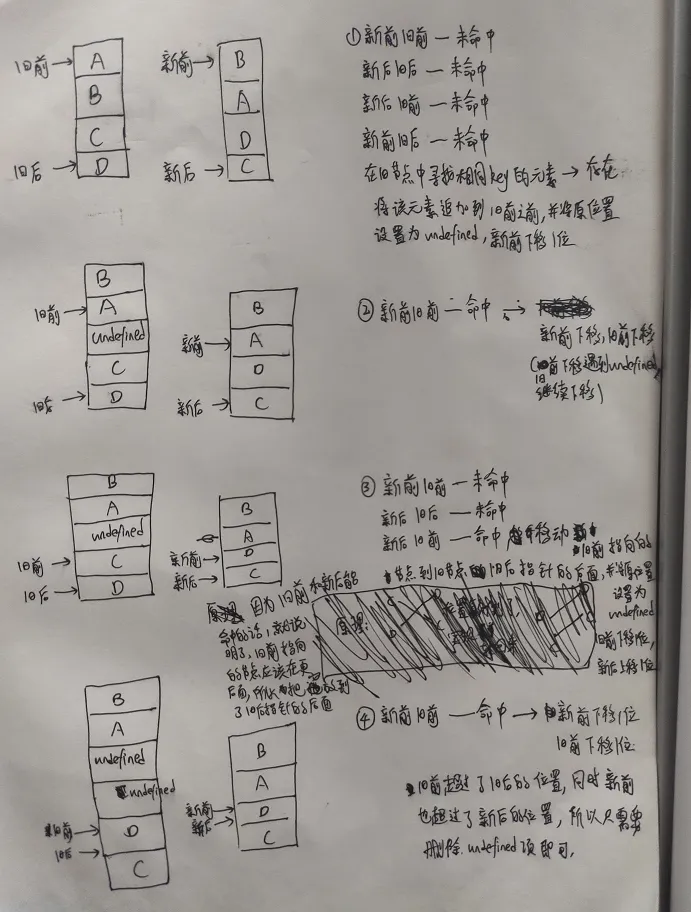 旧前 A
B
C
旧后 D
新前 B
A
D
新后 C
① 新前旧前 — 未命中
新后旧后 — 未命中
新后旧前 — 未命中
新前旧后 — 未命中
在旧节点中寻找相同key的元素 → 存在
将该元素追加到旧前之前,并将原位置
设置为undefined,新前下移1位
B
旧前 A
undefined
C
旧后 D
B
新前 A
D
新后 C
② 新前旧前 — 命中 →
新前下移,旧前下移
(旧前下移遇到undefined
继续下移)
B
A
undefined
旧前 C
旧后 D
B
A
新前 D
新后 C
③ 新前旧前 — 未命中
新后旧后 — 未命中
新后旧前 — 命中 移动 旧前指向的
节点到旧节点 旧后指针的后面,并将原位置
设置为
undefined
旧前下移1位,
新后上移1位
因为旧前和新后能
命中的话,就说
明了,旧前指向
的节点应该在更
后面,所以把 放到
了旧后指针的后面
原理:
B
A
undefined
undefined
旧前 D
旧后
C
B
A
新前 D
新后
C
④ 新前旧前 — 命中 → 新前下移1位
旧前下移1位
旧前超过了旧后的位置,同时新前
也超过了新后的位置,所以只需要
删除undefined项即可.